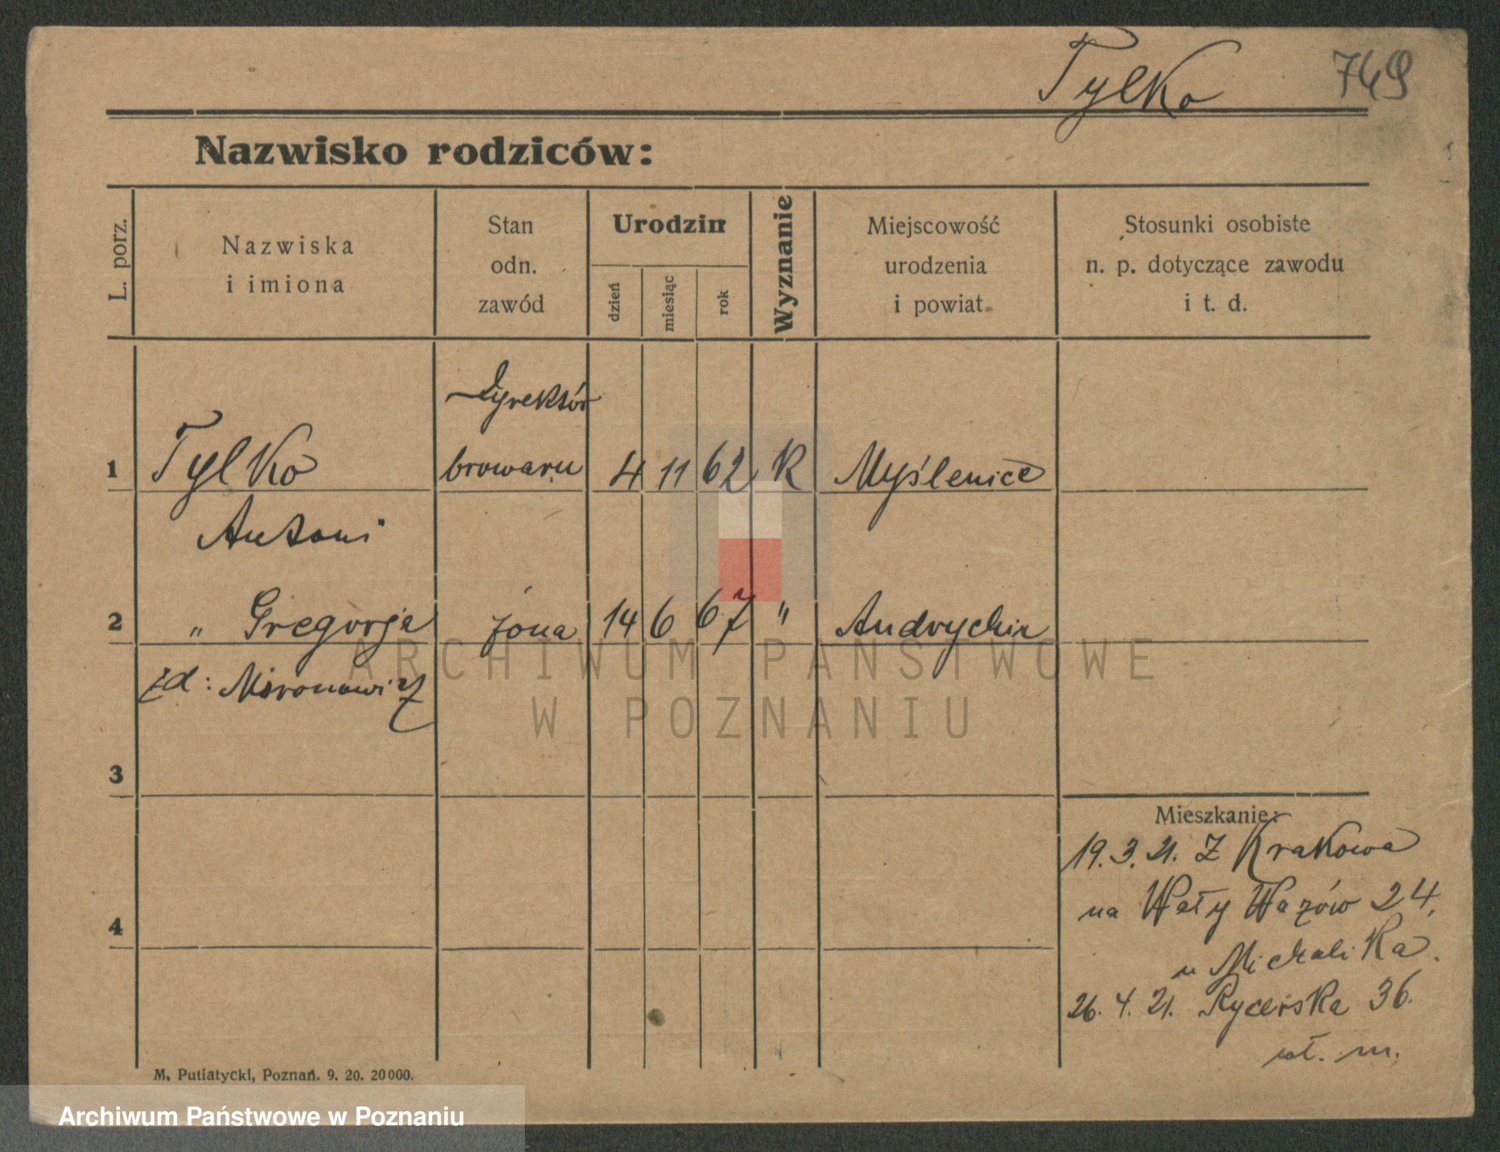 Tylko 749
Nazwisko rodziców:
L. porz.
Nazwiska
i imiona
Stan
odn.
zawód
Urodzin
dzień
miesiąc
rok
Wyznanie
Miejscowość
urodzenia
i powiat.
Stosunki osobiste
n. p. dotyczące zawodu
i t. d.
Dyrektór
1 Tylko browaru 4 11 62 K Myślenice
Antoni
2 " Gregorja żona 14 6 67 " Andrychin
zd: Moronowicz
3
4
Mieszkanie:
19.3.21. Z Krakowa
na Wały Wazów 24.
u Michalika.
26.4.21. Rycerska 36.
wł. m.
M. Putiatycki, Poznań. 9. 20. 20000.
ARCHIWUM PAŃSTWOWE
W POZNANIU
Archiwum Państwowe w Poznaniu